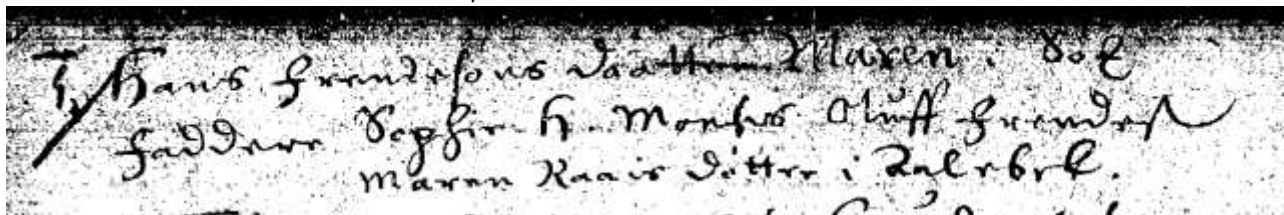 Hans Frendesøns daatter Maren i
Faddere Sophie H. Monses Oluff Frendes
Maren Raais dotter i Aalebek.